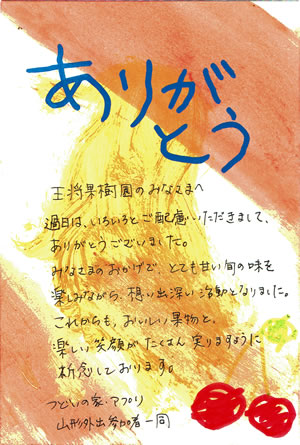 ありがとう
王将果樹園のみなさまへ
過日は、いろいろとご配慮いただきまして、
ありがとうございました。
みなさまのおかげで、とても甘い旬の味を
楽しみながら、想い出深い活動となりました。
これからも、おいしい果物と、
楽しい笑顔がたくさん実りますように
祈念しております。
つどいの家・アプリ
山形外出参加者一同